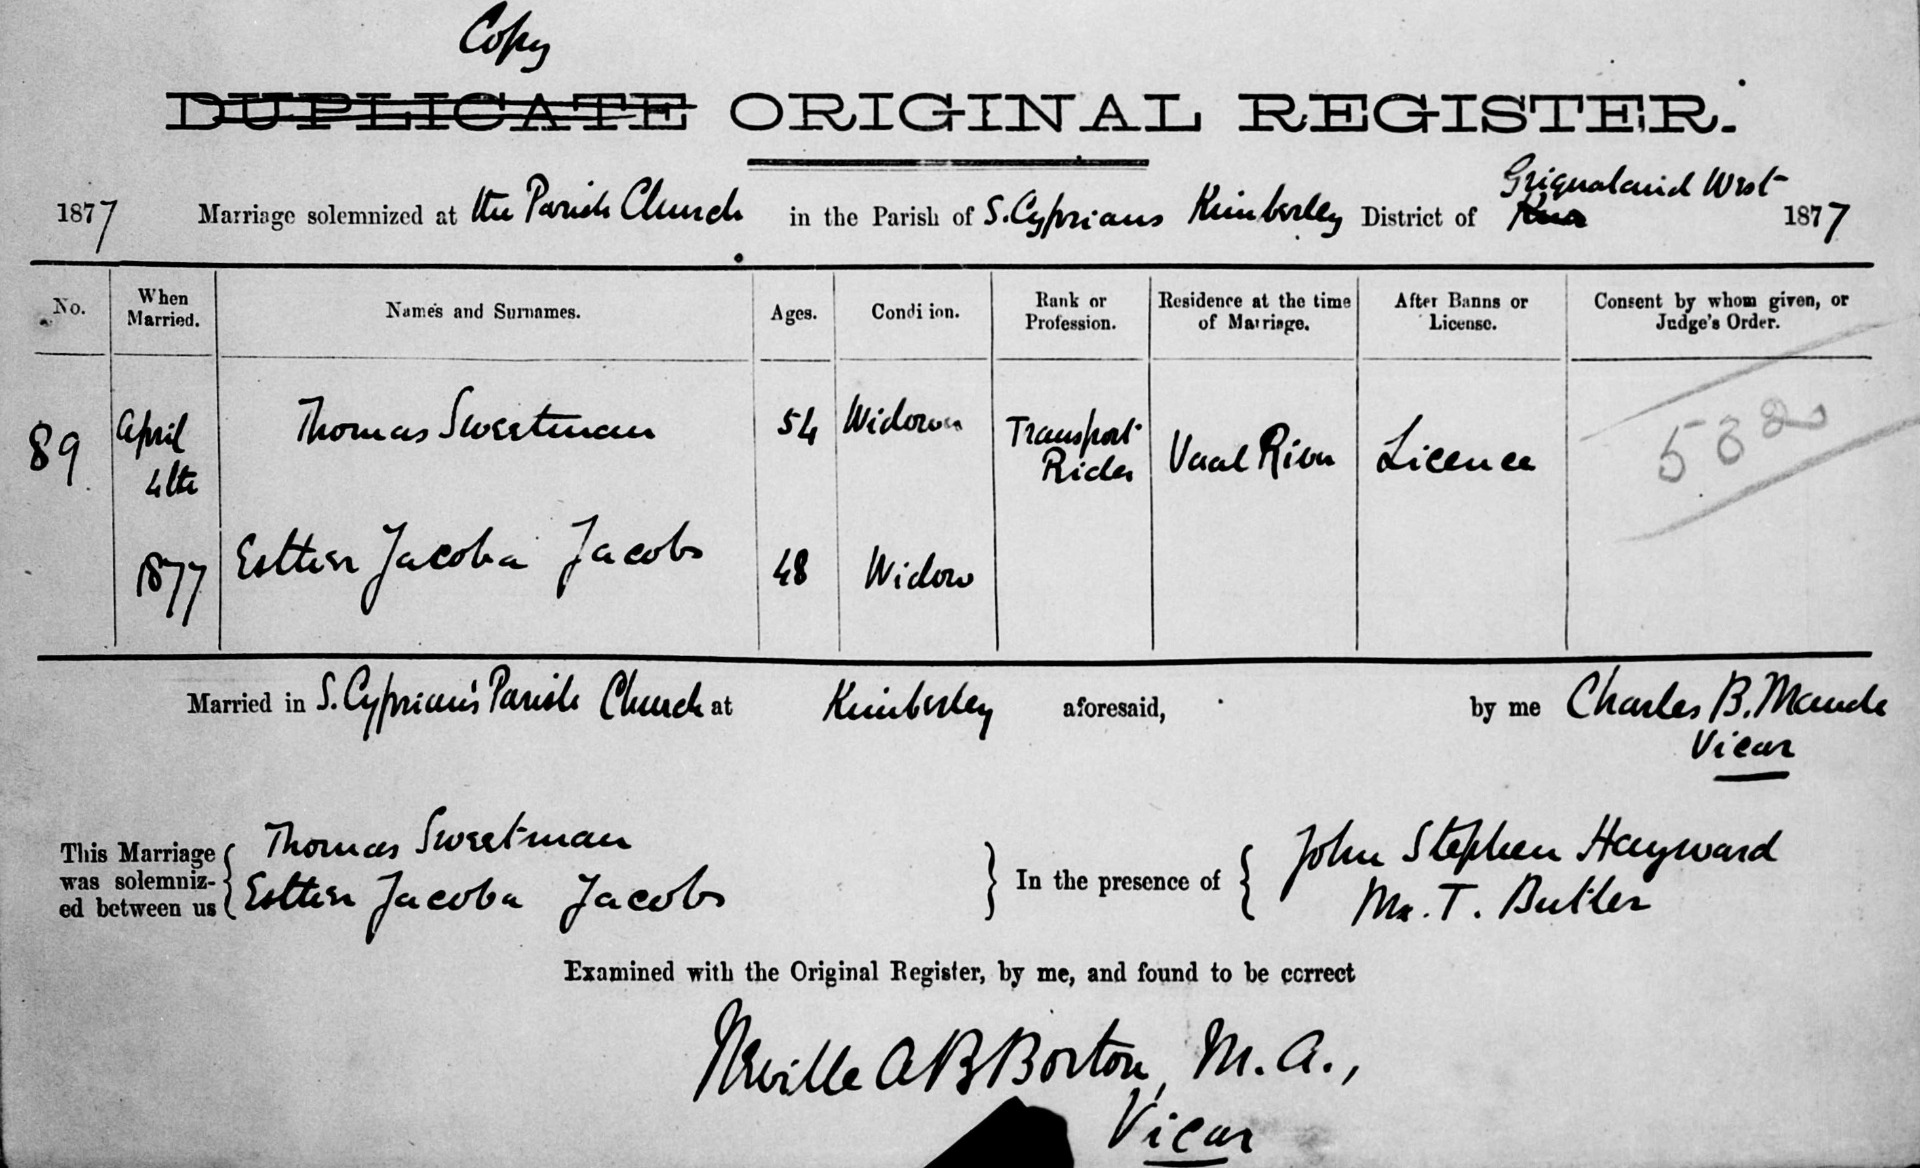 Copy
DUPLICATE ORIGINAL REGISTER.
Griqualand West
1877 Marriage solemnized at the Parish Church in the Parish of S. Cyprians Kimberley District of 1877
No. When Married. Names and Surnames. Ages. Condi ion. Rank or Profession. Residence at the time of Marriage. After Banns or License. Consent by whom given, or Judge's Order.
89 April 4th 1877 Thomas Sweetman 54 Widower Transport Rider Vaal River Licence 532
Esther Jacoba Jacobs 48 Widow
Married in S. Cyprian's Parish Church at Kimberley aforesaid, by me Charles B. Maude
Vicar
This Marriage was solemniz-ed between us { Thomas Sweetman
Esther Jacoba Jacobs } In the presence of { John Stephen Hayward
Mr. T. Butler
Examined with the Original Register, by me, and found to be correct
Neville A B Borton, M.A.,
Vicar